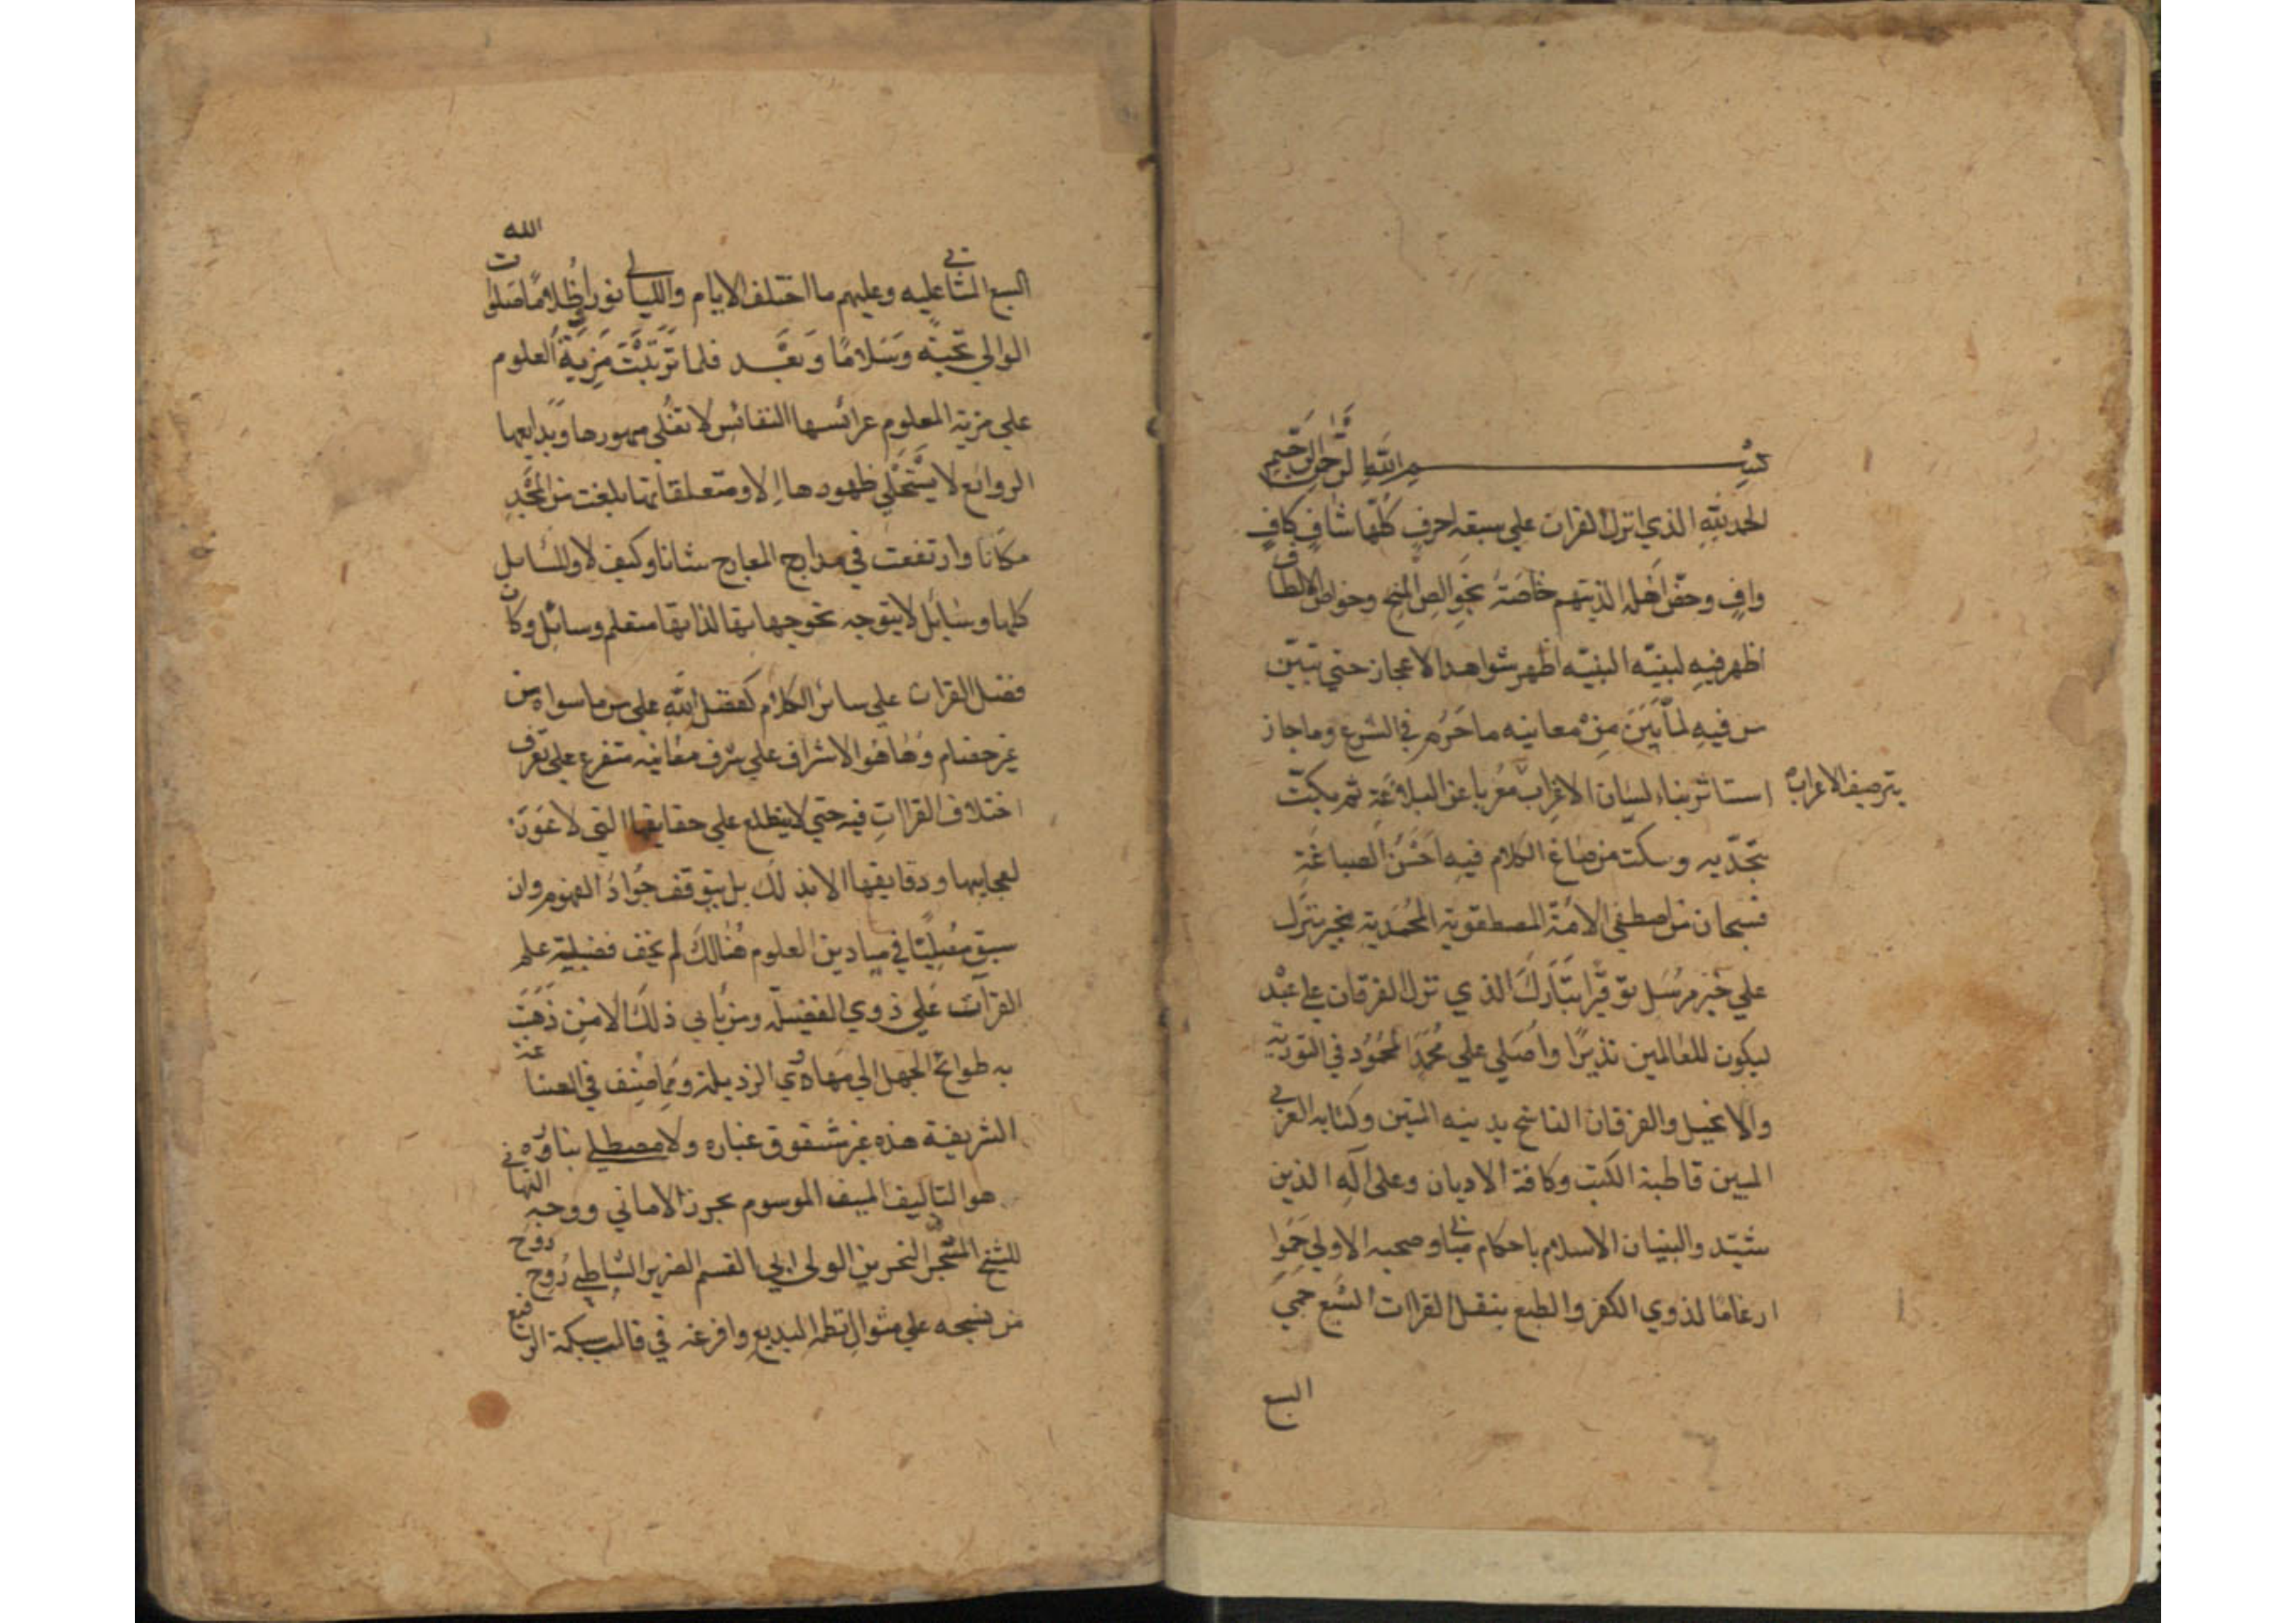 بسم الله الرحمن الرحيم
الحمد لله الذي انزل القران علي سبعة احرف كلها شاف كاف
واف وخص اهله الذين هم خاصته بخوالص المنح وخواص الالطاف
اظهر فيه لبنيّه البنيّه اظهر شواهد الاعجاز حتي تبيّن
من فيه لما بين من معانيه ما حرم في الشرع وما جاز
استاثر بناء لسان الاعراب معربا عن البلاغة ثم بكّت
بترصيف الاعرابه
بتحدّيه وسكت من صاغ الكلام فيه احسن الصياغة
فسبحان من اصطفي الامّة المصطفوية المحمدية بخير منزل
علي خير مرسل توقيرا تبارك الذي نزل الفرقان علي عبده
ليكون للعالمين نذيرًا واصلي علي محمد المحمود في التورية
والانجيل والفرقان الناسخ بدينه المتين وكتابه العربي
المبين قاطبة الكتب وكافة الاديان وعلى آله الذين
شيّدوا لبنيان الاسلام باحكام مباني وصحبه الاولي حموا
ارغامًا لذوي الكفر والطبع بنقل القراات السبع حمي
السبع
السبع المثاني عليه وعليهم ما اختلف الايام والليالي نورا وظلامًا صلوات الله
الوالي تحية وسلامًا وبعد فلما ترتبت مزية العلوم
علي مزية المعلوم عرائسها النفائس لا تغلي مهورها وبدايعها
الروائع لا يستحلي ظهورها الا ومتعلقاتها بلغت من المجد
مكانا وارتفعت في مدارج المعارج شانا وكيف لا والمسائل
كلها وسائل لا يتوجه نحو جهابتها لذاتها متعلم وسائل وكان
فضل القران علي سائر الكلام كفضل الله علي من ما سواه من
غير خصام وها هو الاشراف علي شرف معانيه متفرع علي تعرف
اختلاف القراات فيه حتي لا يطلع علي حقايقها التي لا عون
لعجايبها ودقايقها الا بذلك بل يتوقف جواد الفهوم وان
سبق مصليًا في ميادين العلوم هنالك لم يخف فضيلة علم
القراآت علي ذوي الفضيلة ومن يابي ذلك الا من ذهبت
به طوائح الجهل الي مهاوي الرذيلة ومما صنف في الصناعة
الشريفة هذه غير مشقوق غباره ولا مصطلي بناره
هو التاليف المنيف الموسوم بحرز الاماني ووجه التهاني
للشيخ المتبحر النحرير الولي ابي القسم الضرير الشاطبي روح روحه
من نسجه علي منوال نظمه البديع وافرغه في قالب سبكه الرفيع